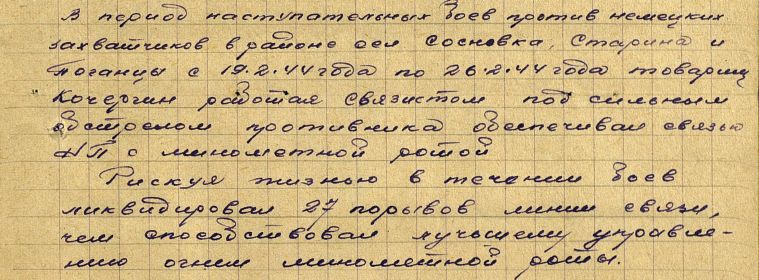 В период наступательных боев против немецких
захватчиков в районе сел Сосновка, Старина и
Поганцы с 19.2.44 года по 26.2.44 года товарищ
Кочергин работая связистом под сильным
обстрелом противника обеспечивал связью
НП с минометной ротой
Рискуя жизнью в течении боев
ликвидировал 27 порывов линии связи,
чем способствовал лучшему управле-
нию огнем минометной роты.